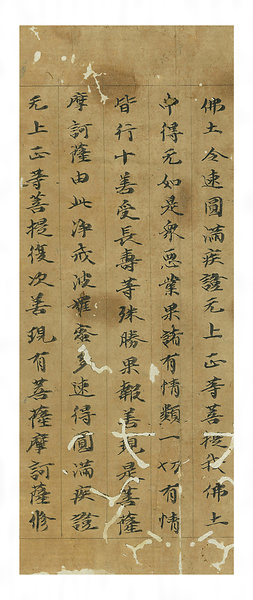 佛土令速圓滿疾證无上正等菩提我佛土
中得无如是衆惡業果諸有情類一切有情
皆行十善受長壽等殊勝果報善現是菩薩
摩訶薩由此净戒波羅蜜多速得圓滿疾證
无上正等菩提復次善現有菩薩摩訶薩修